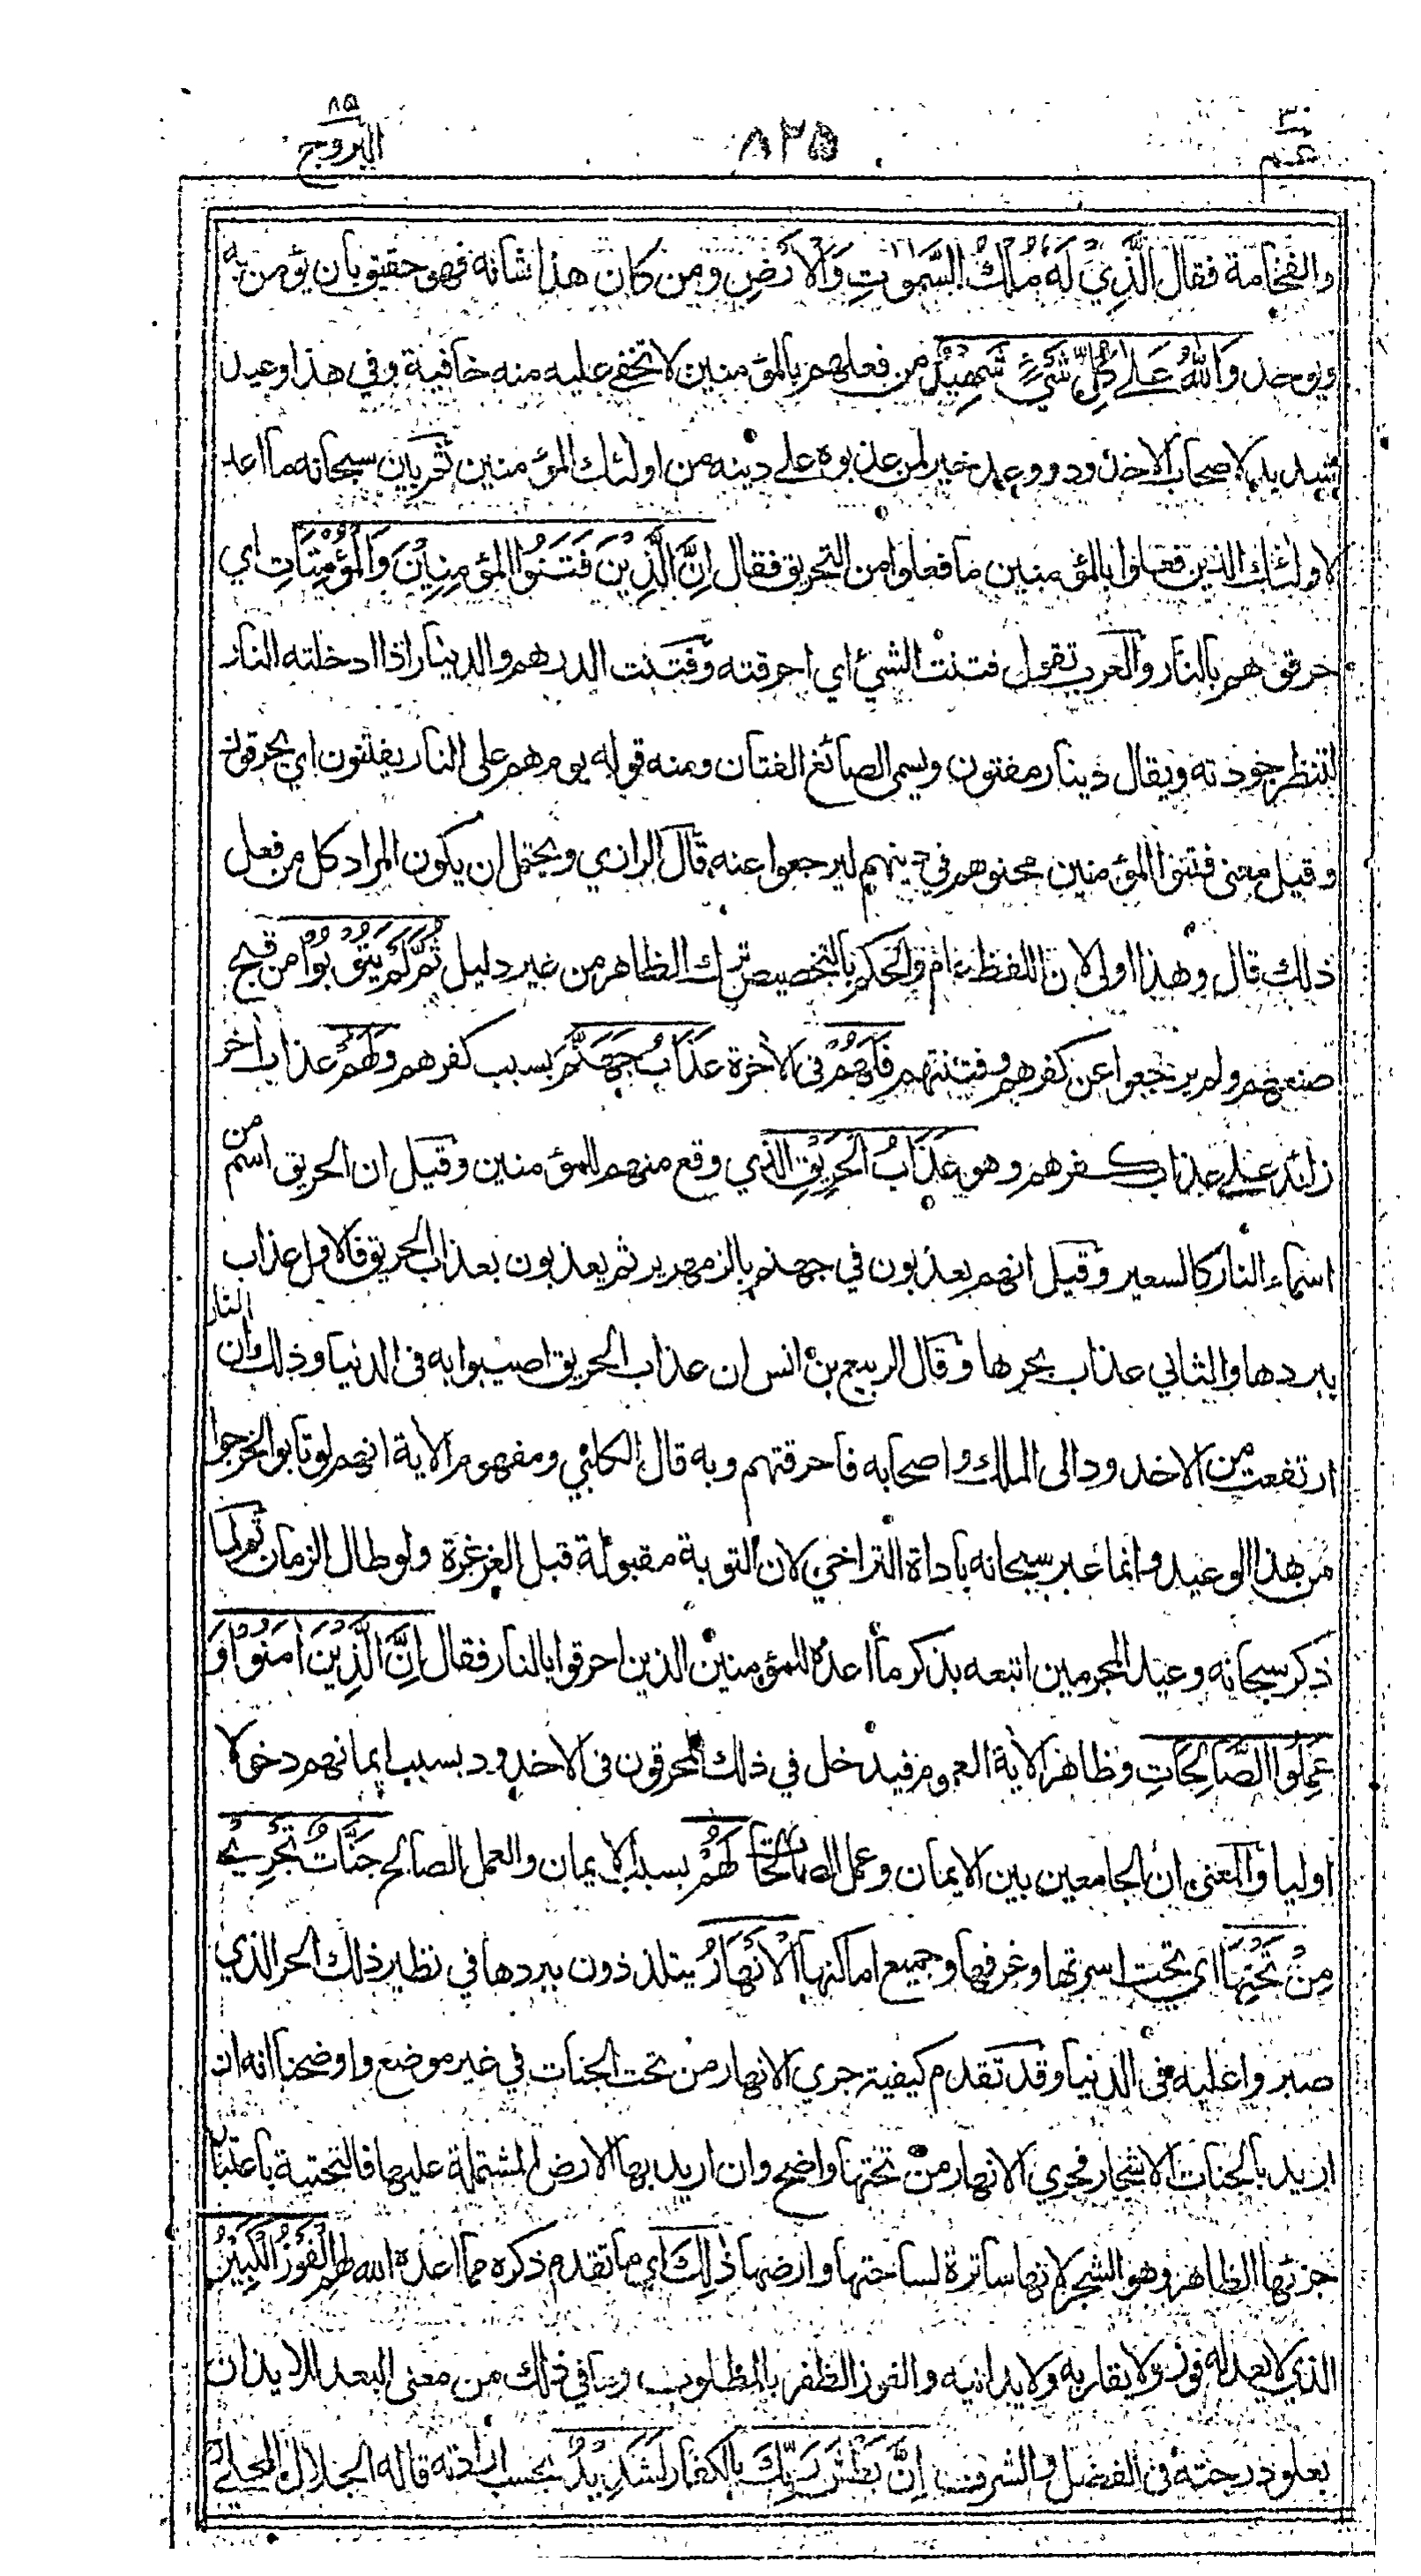 ٣٠
عم
٨٢٥
٨٥
البروج
والفخامة فقال الَّذِيْ لَهُ مُلْكُ السَّمٰوٰتِ وَالْاَرْضِ ومن كان هذا شانه فهو حقيق بان يؤمن به
ويوحد وَاللّٰهُ عَلٰى كُلِّ شَيْءٍ شَهِيْدٌ من فعلهم بالمؤمنين لا تخفى عليه منه خافية وفي هذا وعيد
شديد لاصحاب الاخدود ووعد خير لمن عذبوه على دينه من اولئك المؤمنين ثم بين سبحانه ما اعد
لاولئك الذين فعلوا بالمؤمنين ما فعلوا من التحريق فقال اِنَّ الَّذِيْنَ فَتَنُوا الْمُؤْمِنِيْنَ وَالْمُؤْمِنَاتِ اي
حرقوهم بالنار والعرب تقول فتنت الشيء اي احرقته وفتنت الدرهم والدينار اذا ادخلته النار
لتنظر جودته ويقال دينار مفتون ويسمى الصائغ الفتان ومنه قوله يوم هم على النار يفتنون اي يحرقون
وقيل معنى فتنوا المؤمنين محنوهم في دينهم ليرجعوا عنه قال الرازي ويحتمل ان يكون المراد كل من فعل
ذلك قال وهذا اولى لان اللفظ عام والحكم بالتخصيص ترك الظاهر من غير دليل ثُمَّ لَمْ يَتُوْبُوْا من قبح
صنعهم ولم يرجعوا عن كفرهم وفتنتهم فَلَهُمْ فى الاخرة عَذَابُ جَهَنَّمَ بسبب كفرهم وَلَهُمْ عذاب اخر
زائد على عذاب كفرهم وهو عَذَابُ الْحَرِيْقِ الذي وقع منهم للمؤمنين وقيل ان الحريق اسم من
اسماء النار كالسعير وقيل انهم يعذبون في جهنم بالزمهرير ثم يعذبون بعذاب الحريق فالاول عذاب
ببردها والثاني عذاب بحرها وقال الربيع بن انس ان عذاب الحريق اصيبوا به فى الدنيا وذلك وان النار
ارتفعت من الاخدود الى الملك واصحابه فاحرقتهم وبه قال الكلبي ومفهوم الاية انهم لو تابوا لخرجوا
من هذا الوعيد وانما عبر سبحانه باداة التراخي لان التوبة مقبولة قبل الغرغرة ولو طال الزمان ثم لما
ذكر سبحانه وعيد المجرمين اتبعه بذكر ما اعده للمؤمنين الذين احرقوا بالنار فقال اِنَّ الَّذِيْنَ اٰمَنُوْا وَ
عَمِلُوا الصَّالِحَاتِ وظاهر الاية العموم فيدخل في ذلك المحرقون فى الاخدود بسبب ايمانهم دخولا
اوليا والمعنى ان الجامعين بين الايمان وعمل الصالحات لَهُمْ بسبب الايمان والعمل الصالح جَنَّاتٌ تَجْرِيْ
مِنْ تَحْتِهَا اي تحت اسرتها وغرفها وجميع اماكنها الْاَنْهَارُ يتلذذون ببردها في نظير ذلك الحر الذي
صبروا عليه في الدنيا وقد تقدم كيفية جري الانهار من تحت الجنات في غير موضع واوضحنا انه ان
اريد بالجنات الاشجار فجري الانهار من تحتها واضح وان اريد بها الارض المشتملة عليها فالتحتية باعتبار
جزئها الظاهر وهو الشجر لانها ساترة لساحتها وارضها ذٰلِكَ اي ما تقدم ذكره مما اعده الله لهم الْفَوْزُ الْكَبِيْرُ
الذي لا يعدله فوز ولا يقاربه ولا يدانيه والفوز الظفر بالمطلوب وما في ذلك من معنى البعد للايذان
بعلو درجته فى الفضل والشرف اِنَّ بَطْشَ رَبِّكَ بالكفار لَشَدِيْدٌ بحسب ارادته قاله الجلال المحلى